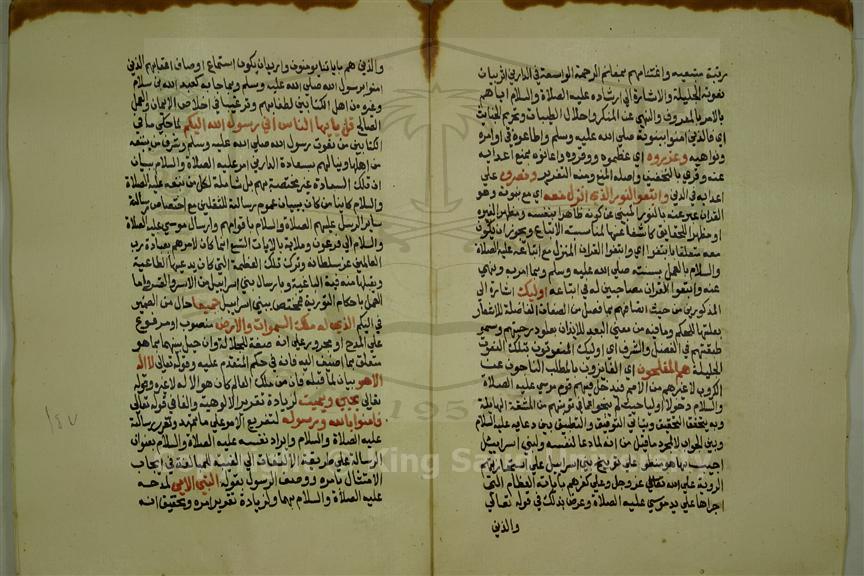 رقبة متبعيه واغتنامهم بمغانم الرحمة الواسعة في الدارين اثر بيان
نعوته الجليلة والاشارة الى ارشاده عليه الصلاة والسلام اياهم
بالامر بالمعروف والنهي عن المنكر واحلال الطيبات وتحريم الخبائث
اي فالذين امنوا بنبوته صلى الله عليه وسلم واطاعوه في اوامره
ونواهيه وعزروه اي عظموه ووقروه واعانوه بمنع اعدائه
عنه وقرئ بالتخفيف واصله المنع ومنه التعزير ونصروه على
اعدائه في الدين واتبعوا النور الذي انزل معه اي مع نبوته وهو
القران عبر عنه بالنور المبني عن كونه ظاهرا بنفسه ومظهرا لغيره
او مظهرا للحقايق كاشفا عنها لمناسبة الاتباع ويجوز ان يكون
معه متعلقا باتبعوا اي واتبعوا القران المنزل مع اتباعه عليه الصلاة
والسلام بالعمل بسنته صلى الله عليه وسلم وبما امر به ونهى
عنه او اتبعوا القران مصاحبين له في اتباعه اوليك اشارة الى
المذكورين من حيث اتصافهم بما فصل من الصفات الفاضلة للاشعار
بعليتها للحكم وما فيه من معنى البعد للايذان بعلو درجتهم وسمو
طبقتهم في الفضل والشرف اي اوليك المنعوتون بتلك النعوت
الجليلة هم المفلحون اي الفائزون بالمطلوب الناجون عن
الكروب لا غيرهم من الامم فيدخل فيهم قوم موسى عليه الصلاة
والسلام دخولا اوليا حيث لم ينجوا عما في توبتهم من المشقة الهائلة
وبه يتحقق التحقيق ويتاتى التوفيق والتطبيق بين دعايه عليه السلام
وبين الجواب لا بمجرد ما قيل من انه لما دعا لنفسه ولبني اسرائيل
اجيب بما هو منطو على توبيخ بني اسرائيل على استجازتهم
الروية على الله تعالى عز وجل وعلى كفرهم بايات الله العظام التي
اجراها على يد موسى عليه الصلاة وعرض بذلك في قوله تعالى
والذين
والذين هم باياتنا يومنون واريد ان يكون استماع اوصاف اعقابهم الذين
امنوا برسول الله صلى الله عليه وسلم وبما جا به كعبد الله بن سلام
وغيره من اهل الكتابين لطفا بهم وترغيبا في اخلاص الايمان والعمل
الصالح قل يا ايها الناس اني رسول الله اليكم لما حكي ما في
الكتابين من نعوت رسول الله صلى الله عليه وسلم وشرف من يتبعه
من اهلهما ونيلهم بسعادة الدارين امر عليه الصلاة والسلام ببيان
ان تلك السعادة غير مختصة بهم بل شاملة لكل من يتبعه عليه الصلاة
والسلام كاينا من كان ببيان عموم رسالته للثقلين مع اختصاص رسالة
ساير الرسل عليهم الصلاة والسلام باقوامهم وارسال موسى عليه الصلاة
والسلام الى فرعون وملايه بالايات التسع انما كان لامرهم بعبادة رب
العالمين عز سلطانه وترك تلك العظمة التي كان يدعيها الطاغية
ويقبلها منه فيته الباغية وبارسال بني اسرايل من الاسر والقسر واما
العمل باحكام التورية فمختص ببني اسرايل جميعا حال من الضمير
في اليكم الذي له ملك السموات والارض منصوب او مرفوع
على المدح او مجرور على انه صفة للجلالة وان حيل بينهما بما هو
متعلق بما اضيف اليه فانه في حكم المتقدم عليه وقوله تعالى لا اله
الا هو بيان لما قبله فان من ملك العالم كان هو الاله لا غيره وقوله
تعالى يحيي ويميت لزيادة تقرير الالوهية والفا في قوله تعالى
فامنوا بالله ورسوله لتفريع الامر على ما تمهد وتقرر من رسالته
عليه الصلاة والسلام وايراد نفسه عليه الصلاة والسلام بعنوان
الرسالة على طريقة الالتفات الى الغيبة للمبالغة في ايجاب
الامتثال بامره ووصف الرسول بقوله النبي الامي لمدحه
عليه الصلاة والسلام بهما ولزيادة تقرير امره وتحقيق انه
١٤٧
1957
Copyright © King Saud University